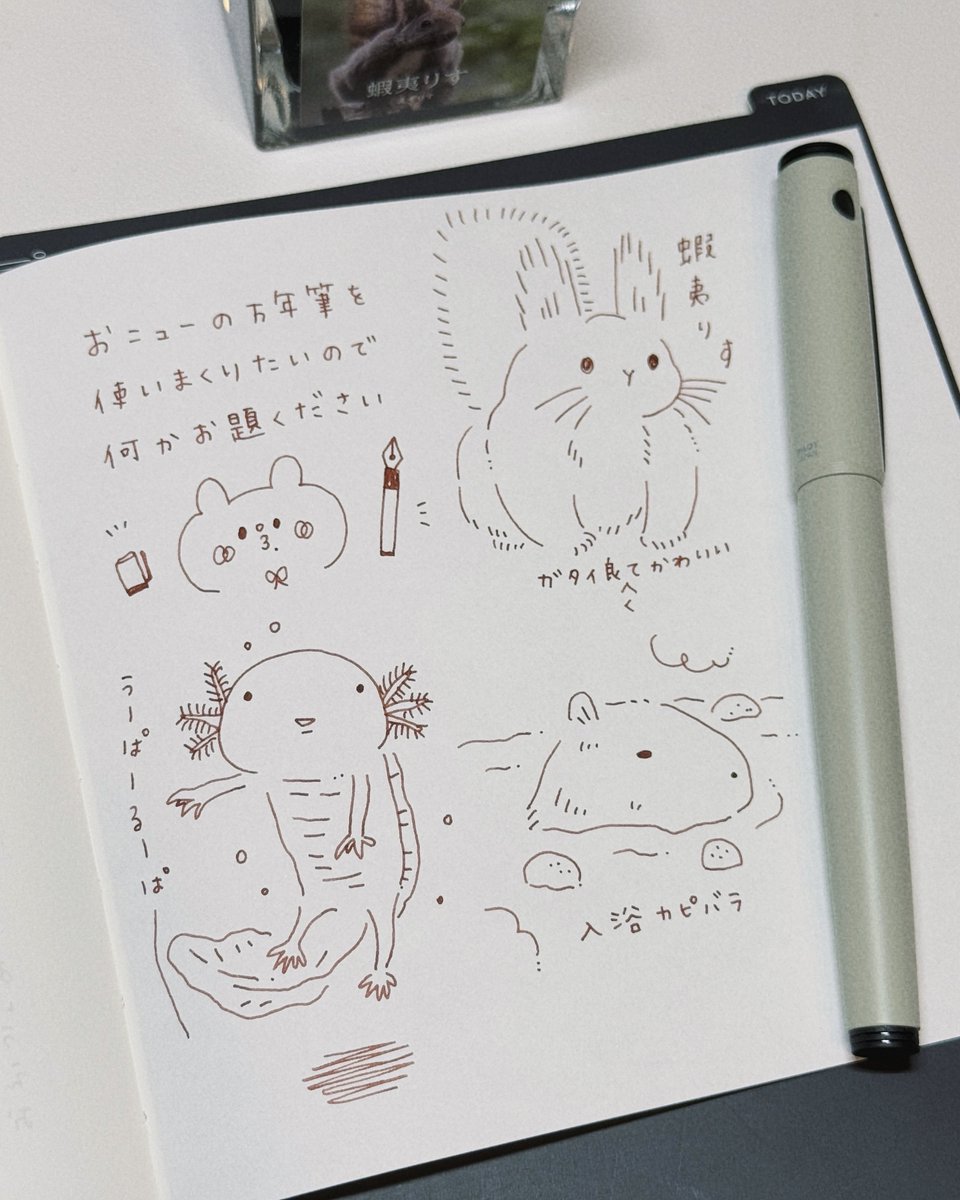 蝦夷りす
TODAY
おニューの万年筆を
使いまくりたいので
何かお題ください
蝦夷りす
ガタイ良くてかわいい
うーぱーるーぱ
入浴カピバラ